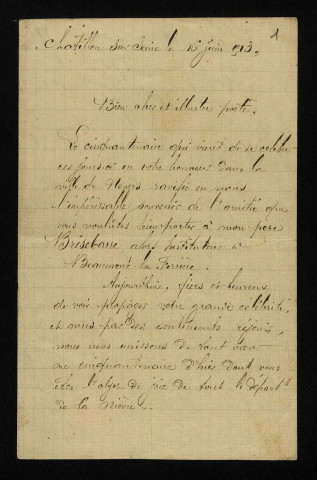 1
Chatillon sur Seine le 16 juin 1913.
Bien cher et illustre poète,
Le cinquantenaire qui vient de se célébrer
ces jours-ci en votre honneur dans la
ville de Nevers ravive en nous
l'impérissable souvenir de l'amitié que
vous voulûtes bien porter à mon père
Brisebane alors Instituteur à
Beaumont la Ferrière.
Aujourd'hui, fiers et heureux
de voir propager votre grande célébrité
et émus par des sentiments réjouis,
nous nous unissons de tout cœur
au cinquantenaire d'hier dont vous
êtes l'objet de joie de tout le départt
de la Nièvre.